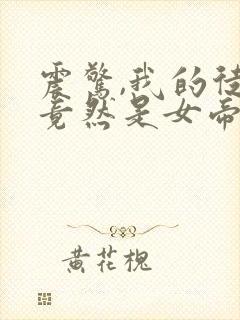 震驚,我的徒
竟然是女帝
黄花槐